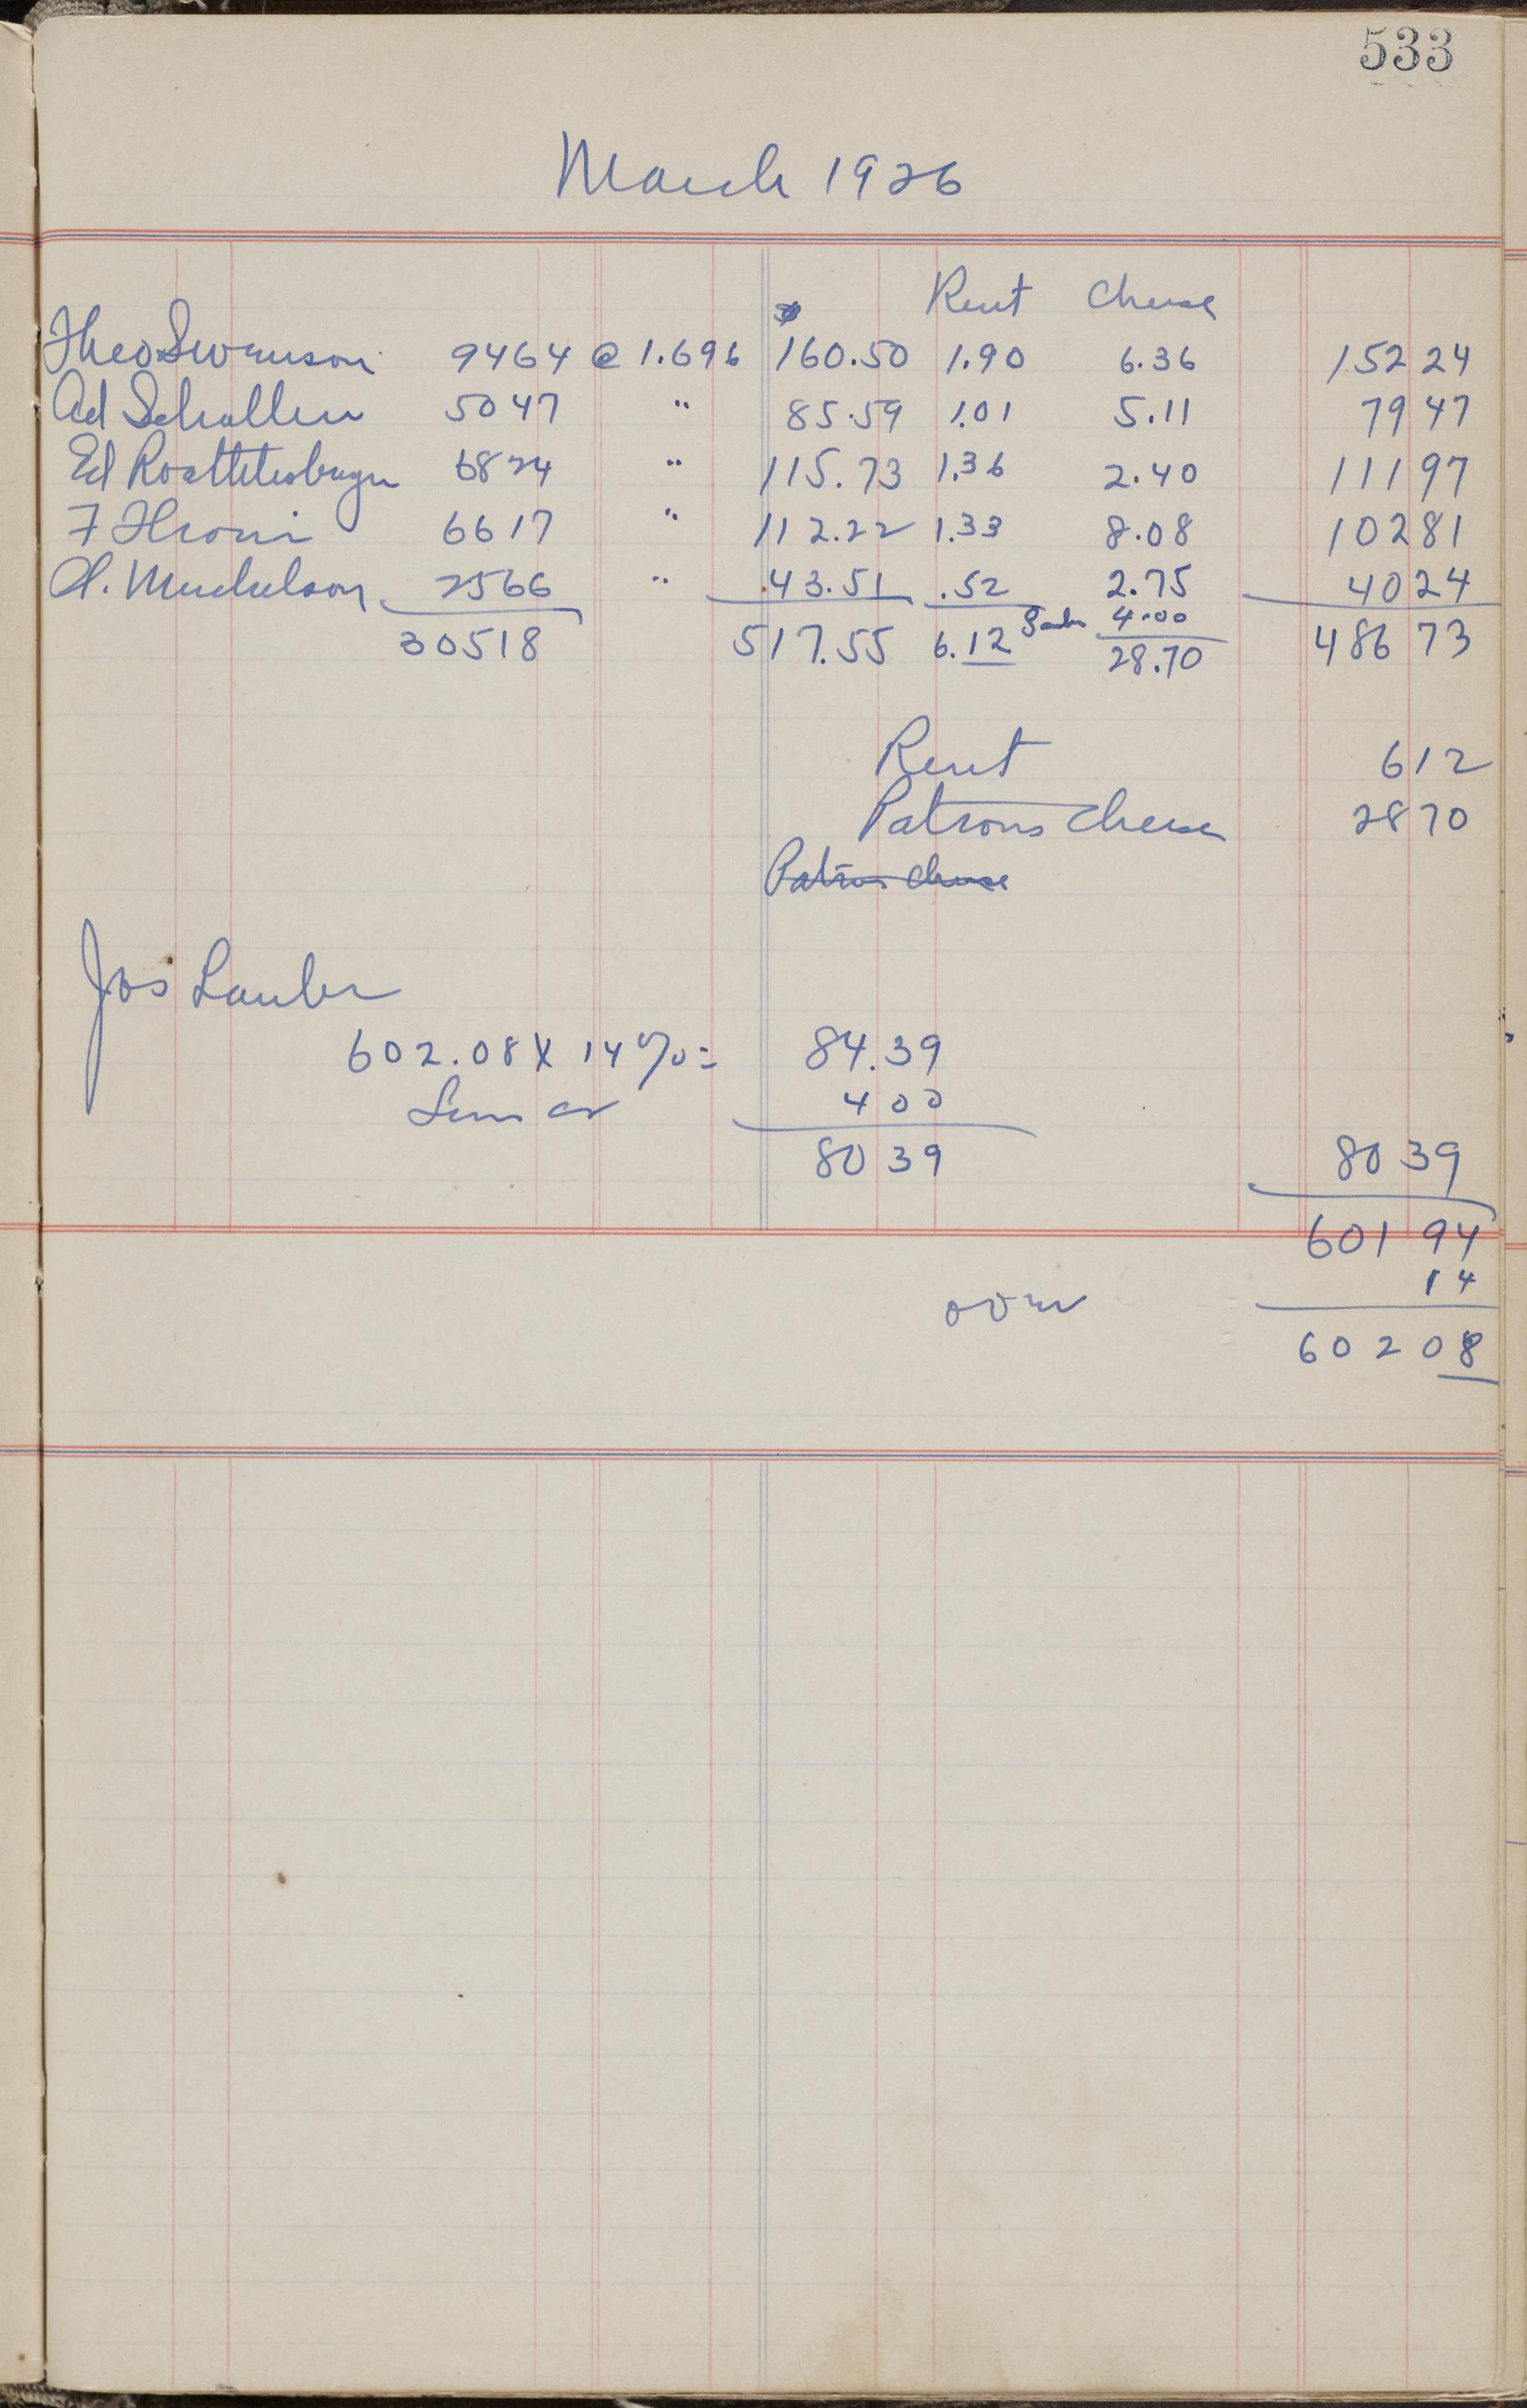 533
March 1926
$ Rent Cheese
Theo Swanson 9464 @ 1.696 160.50 1.90 6.36 152 24
Ad Schallen 5047 " 85.59 1.01 5.11 79 47
Ed 6824 " 115.73 1.36 2.40 111 97
F 6617 " 112.22 1.33 8.08 102 81
2566 " .43.51 .52 2.75 40 24
4.00
30518 517.55 6.12 28.70 486 73
Rent 6 12
Patrons Cheese 28 70
Patrons Cheese
Jos Lauber
602.08 X 14% = 84.39
4 00
80 39 80 39
601 94
over 14
602 08